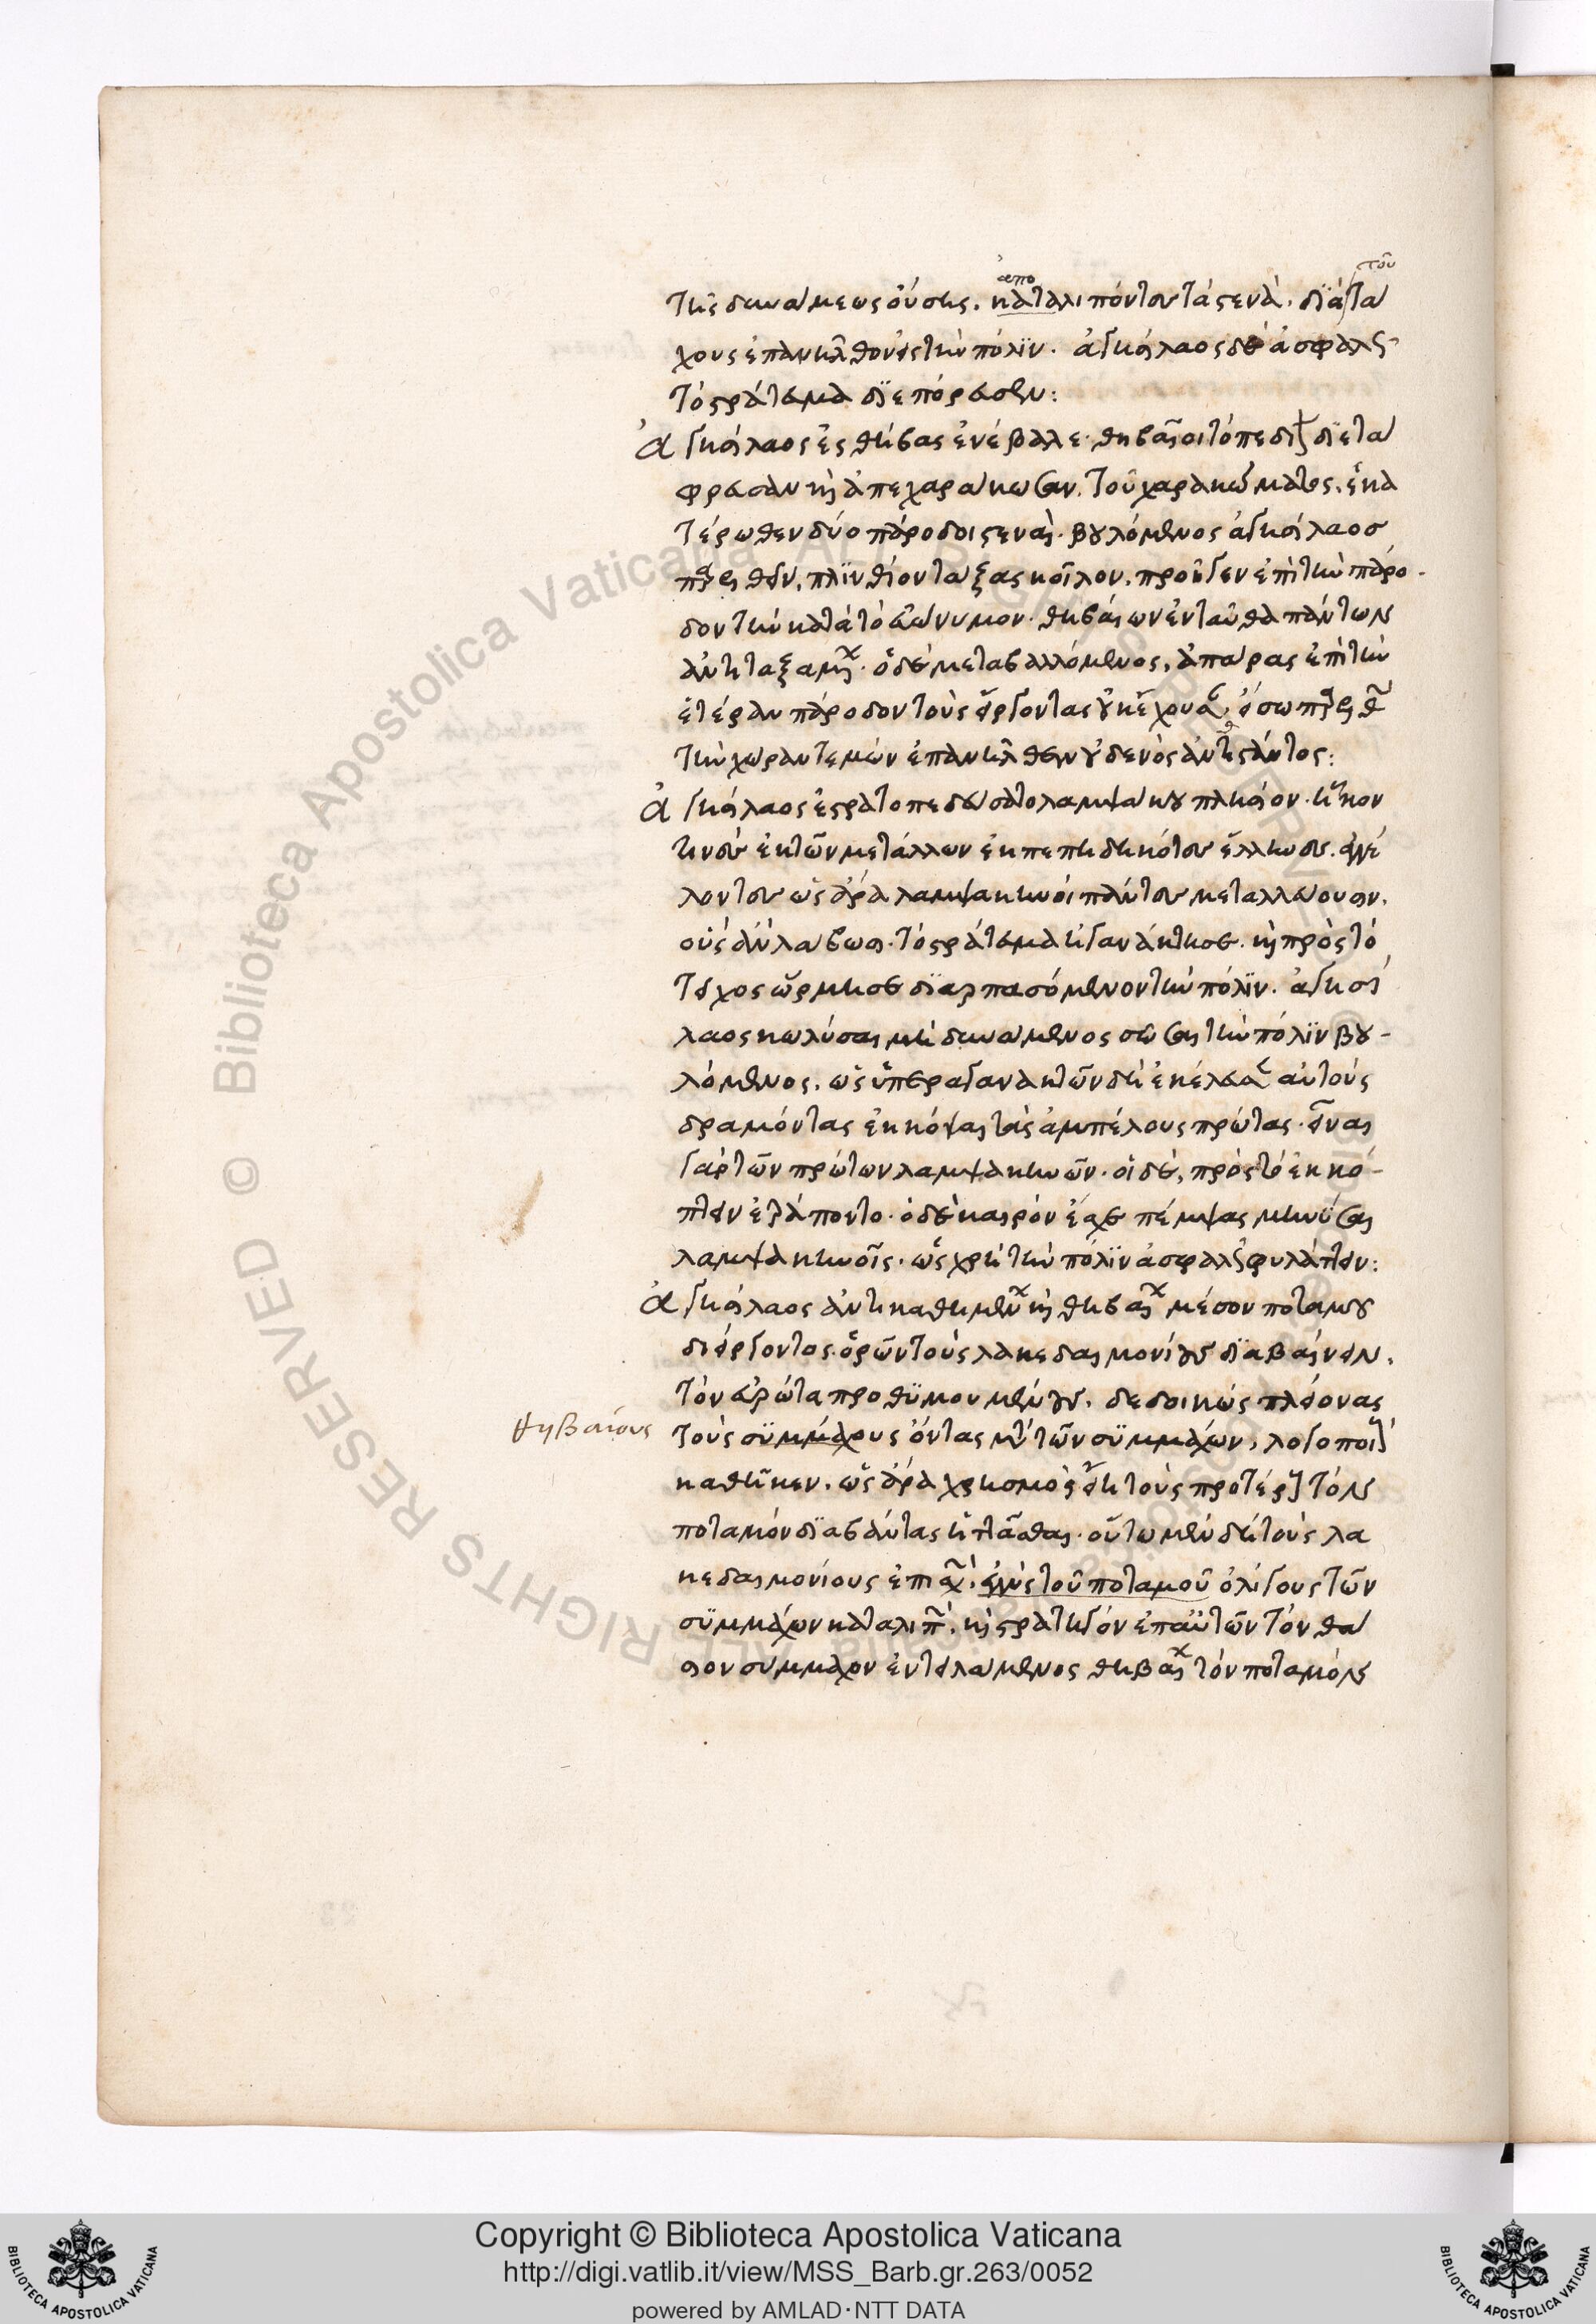 του
απο
τῆς δυνάμεως οὔσης. καταλιπόντες τὰ στενὰ. διὰ τά
χους ἐπανῆλθον εἰς τὴν πόλιν. ἀγησίλαος δὲ ἀσφαλῶς
τὸ στράτευμα διεπόρευσεν:
Ἀγησίλαος ἐς θήβας ἐνέβαλε. θηβαῖοι τὸ πεδίον διετά
φρευσαν καὶ ἀπεχαράκωσαν. τοῦ χαρακώματος. ἑκα
τέρωθεν δύο πάροδοι στεναί. βουλόμενος ἀγησίλαος
παρελθεῖν, πλινθίον τάξας κοῖλον, προῆγεν ἐπὶ τὴν πάρο-
δον τὴν κατὰ τὸ εὐώνυμον. θηβαίων ἐνταῦθα πάντων
ἀντιταξαμένων. ὁ δὲ μεταβαλλόμενος, ἀπάρας ἐπὶ τὴν
ἑτέραν πάροδον τοὺς εἴργοντας οὐκ ἔχουσαν, εἴσω παρελθὼν
τὴν χώραν τεμὼν ἐπανῆλθεν οὐδενὸς ἀντιστάντος:
Ἀγησίλαος ἐστρατοπεδεύσατο λαμψάκου πλησίον. ἧκον
τινὲς ἐκ τῶν μετάλλων ἐκπεπηδηκότες ἕλληνες. ἀγγέ
λοντες ὡς ἄρα λαμψακηνοὶ πάντες μεταλλεύουσιν.
οὓς ἂν λάβωσι. τὸ στράτευμα ἠγανάκτησε. καὶ πρὸς τὸ
τεῖχος ὥρμησε διαρπασόμενον τὴν πόλιν. ἀγησί
λαος κωλύσαι μὴ δυνάμενος σῶσαι τὴν πόλιν βου-
λόμενος. ὡς ὑπεραγανακτῶν δὴ ἐκέλευσεν αὐτοὺς
δραμόντας ἐκκόψαι τὰς ἀμπέλους πρώτας. εἶναι
γὰρ τῶν πρώτων λαμψακηνῶν. οἱ δὲ, πρὸς τὸ ἐκκό-
πτειν ἐτράποντο. ὁ δὲ καιρὸν ἔσχε πέμψας μηνῦσαι
λαμψακηνοῖς. ὡς χρὴ τὴν πόλιν ἀσφαλῶς φυλάττειν:
Ἀγησίλαος ἀντικαθημένων καὶ θηβαίων μέσον ποταμοῦ
διείργοντος. ὁρῶν τοὺς λακεδαιμονίους διαβαίνειν.
τὸν εὐρώτα προθυμουμένους. δεδοικὼς πλείονας
θηβαίους
τοὺς συμμάχους ὄντας μετὰ τῶν συμμάχων, λογοποιὸν
καθῆκεν. ὡς ἄρα χρησμὸς εἴη τοὺς προτέρους τὸν
ποταμὸν διαβάντας ἡττᾶσθαι. οὕτω μὲν δὴ τοὺς λα
κεδαιμονίους ἐπισχὼν. ἐγγὺς τοῦ ποταμοῦ ὀλίγους τῶν
συμμάχων καταλιπὼν. καὶ στρατηγὸν ἐπ αὐτῶν τὸν θά
σιον σύμμαχον ἐντειλάμενος θηβαίων τὸν ποταμὸν